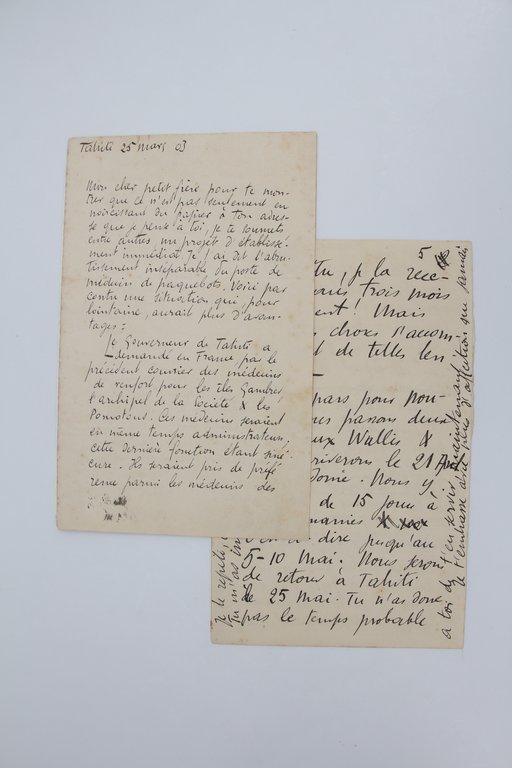 Tahiti 25 mars 03
Mon cher petit frère pour te mon-
trer que ce n'est pas seulement en
noircissant du papier à ton adres-
se que je pense à toi, je te soumets
entre autres, un projet d'établisse-
ment immédiat. Je t'ai dit l'abru-
tissement inséparable du poste de
médecin de paquebots. Voici par
contre une situation qui, pour
lointaine, aurait plus d'avan-
tages :
Le Gouverneur de Tahiti a
demandé en France par le
précédent courrier des médecins
de renfort pour les îles Gambier,
l'archipel de la Société & les
Pomotous. Ces médecins seraient
en même temps administrateurs,
cette dernière fonction étant siné-
cure. Ils seraient pris de préfé-
rence parmi les médecins des
5
tu, je la rece-
trois mois
ent ! Mais
choses s'accom
de telles len
pars pour Nou-
passons deux
aux Wallis &
arriverons le 21
Nous y
de 15 jours à
dire jusqu'au
5-10 Mai. Nous serons
de retour à Tahiti
le 25 Mai. Tu n'as donc
pas le temps probable